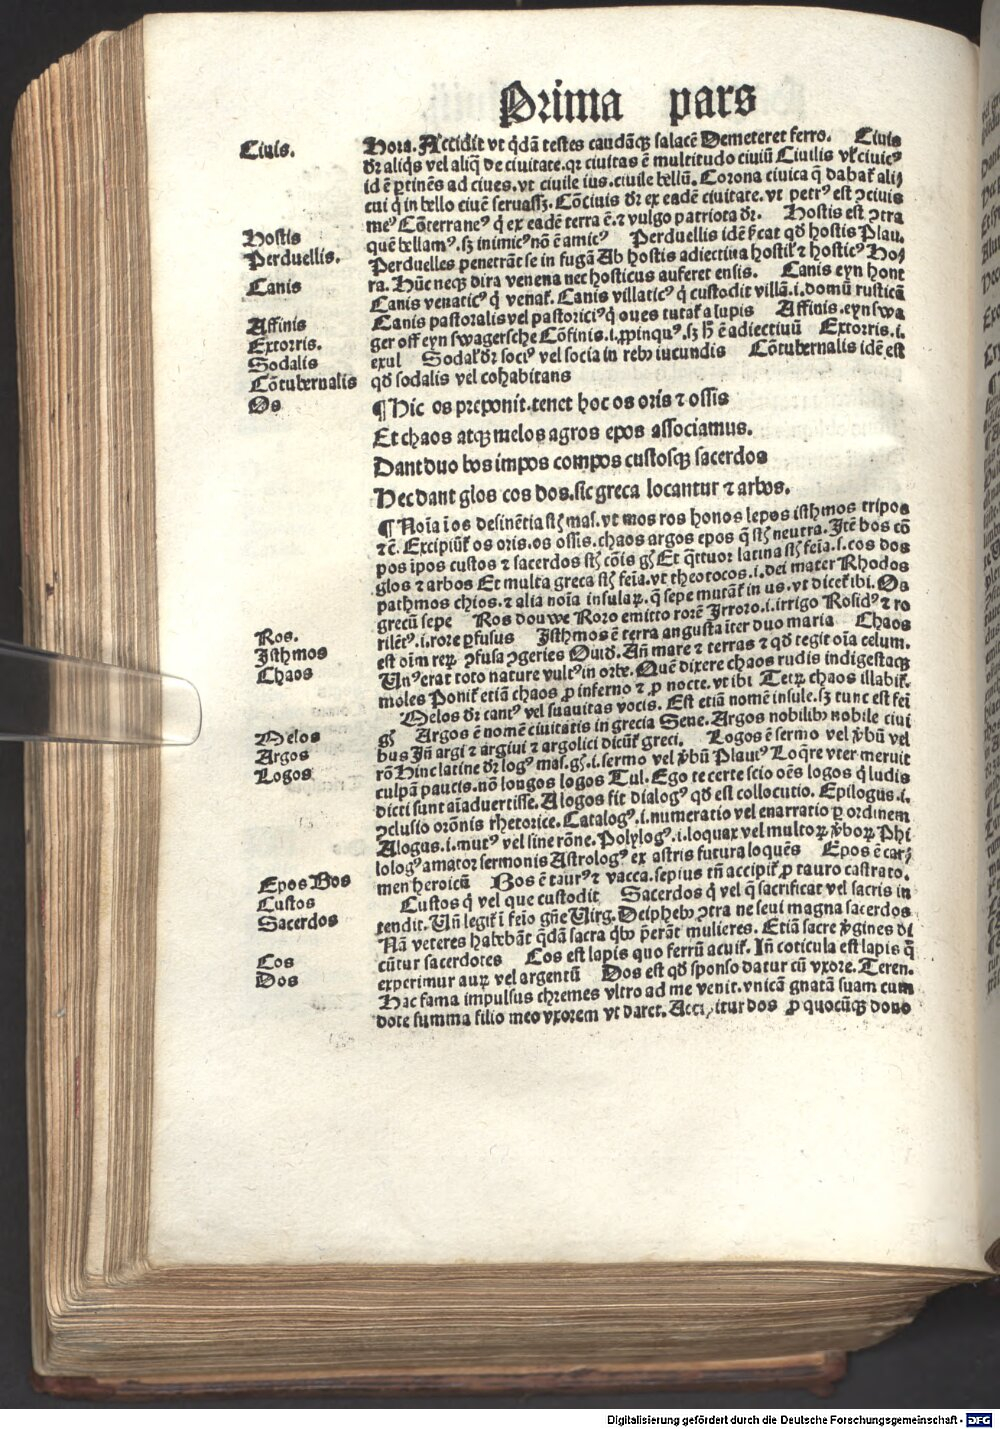 Prima pars
Ciuis.
Hora. Accidit vt q̄dā testes caudāqȝ salacē Demeteret ferro. Ciuis
dr̄ aliq̄s vel aliq̄ de ciuitate. qr ciuitas ē multitudo ciuiū Ciuilis vl̄ ciuicꝰ
id ē ꝑtinēs ad ciues. vt ciuile ius. ciuile bellū. Corona ciuica q̄ dabat᷑ alij
cui q̄ in bello ciuē seruasſȝ. Cōciuis dr̄ ex eadē ciuitate. vt petrꝰ est ↄciuis
meꝰ Cōterraneꝰ q̄ ex eadē terra ē. ⁊ vulgo patriota dr̄. Hostis est ↄtra
Hostis
quē bellamꝰ. sȝ inimicꝰ nō ē amicꝰ Perduellis idē ſ̄cat qd̄ hostis Plau.
Perduellis.
Perduelles penetrāt se in fugā Ab hostis adiectiua hostil᷑ ⁊ hosticꝰ Ho⸗
ra. Hūc neqȝ dira venena nec hosticus auferet ensis. Canis eyn hont
Canis
Canis venaticꝰ q̄ venat᷑. Canis villaticꝰ q̄ custodit villā. i. domū rusticā
Canis pastoralis vel pastoriciꝰ q̄ oues tutat᷑ a lupis Affinis. eyn swa
Affinis
ger off eyn swagersche Cōfinis. i. ꝓpinquꝰ. sȝ h̄ ē adiectiuū Extorris. i.
Extorris.
exul Sodal᷑ dr̄ sociꝰ vel socia in rebꝰ iucundis Cōtubernalis idē est
Sodalis
qd̄ sodalis vel cohabitans
Cōtubernalis
Os
¶ Hic os preponit. tenet hoc os oris ⁊ ossis
Et chaos atqȝ melos agros epos associamus.
Dant duo bos impos compos custosqȝ sacerdos
Hec dant glos cos dos. sic greca locantur ⁊ arbos.
¶ Noīa ī os desinētia st̄ mas. vt mos ros honos lepos isthmos tripos
⁊c̄. Excipiūt᷑ os oris. os ossis. chaos argos epos q̄ st̄ neutra. Itē bos cō
pos īpos custos ⁊ sacerdos st̄ cōis gn̄ Et q̄ttuor latina st̄ feīa. s. cos dos
glos ⁊ arbos Et multa greca st̄ feīa. vt theotocos. i. dei mater Rhodos
pathmos chios. ⁊ alia noīa insulaꝝ. q̄ sepe mutāt᷑ in us. vt dicet᷑ ibi. Os
grecū sepe Ros douwe Roro emitto rorē Irroro. i. irrigo Rosidꝰ ⁊ ro
Ros.
rilētꝰ. i. rore ꝑfusus Isthmos ē terra angusta īter duo maria Chaos
Isthmos
est oīm reꝝ ↄfusa ↄgeries Ouid. Añ mare ⁊ terras ⁊ qd̄ tegit oīa celum.
Chaos
Vnꝰ erat toto nature vultꝰ in orbe. Quē dixere chaos rudis indigestaqȝ
moles Ponit᷑ etiā chaos ꝓ inferno ⁊ ꝓ nocte. vt ibi Tetꝝ chaos illabit᷑.
Melos dr̄ cantꝰ vel suauitas vocis. Est etiā nomē insule. sȝ tunc est fei
Melos
gn̄ Argos ē nomē ciuitatis in grecia Sene. Argos nobilibꝰ nobile ciui
Argos
bus Iñ argi ⁊ argiui ⁊ argolici dicūt᷑ greci. Logos ē sermo vel v̄bū vel
Logos
rō Hinc latine dr̄ logꝰ mas. gn̄. i. sermo vel v̄bū Plautꝰ Loq̄re vter meruit
culpā paucis. nō longos logos Tul. Ego te certe scio oēs logos q̄ ludis
dicti sunt aīaduertisse. A logos fit dialogꝰ qd̄ est collocutio. Epilogus. i.
ↄclusio orōnis rhetorice. Catalogꝰ. i. numeratio vel enarratio ꝑ ordinem
Alogus. i. mutꝰ vel sine rōne. Polylogꝰ. i. loquax vel multoꝝ v̄boꝝ Phi
lologꝰ amator sermonis Astrologꝰ ex astris futura loquēs Epos ē car⸗
men heroicū Bos ē taurꝰ ⁊ vacca. sepius tñ accipit᷑ ꝓ tauro castrato.
Epos Bos
Custos q̄ vel que custodit Sacerdos q̄ vel q̄ sacrificat vel sacris in
Custos
tendit. Vñ legit᷑ ī feīo gn̄e Virg. Deiphebꝰ ↄtra ne seui magna sacerdos
Sacerdos
Nā veteres habebāt q̄dā sacra q̄bꝰ p̄erāt mulieres. Etiā sacre v̄gines di
cūtur sacerdotes Cos est lapis quo ferrū acuit᷑. Iñ coticula est lapis q̄
Cos
experimur auꝝ vel argentū Dos est qd̄ sponso datur cū vxore. Teren.
Dos
Hac fama impulsus chremes vltro ad me venit. vnicā gnatā suam cum
dote summa filio meo vxorem vt daret. Accipitur dos ꝓ quocūqȝ dono
Digitalisierung gefördert durch die Deutsche Forschungsgemeinschaft - DFG